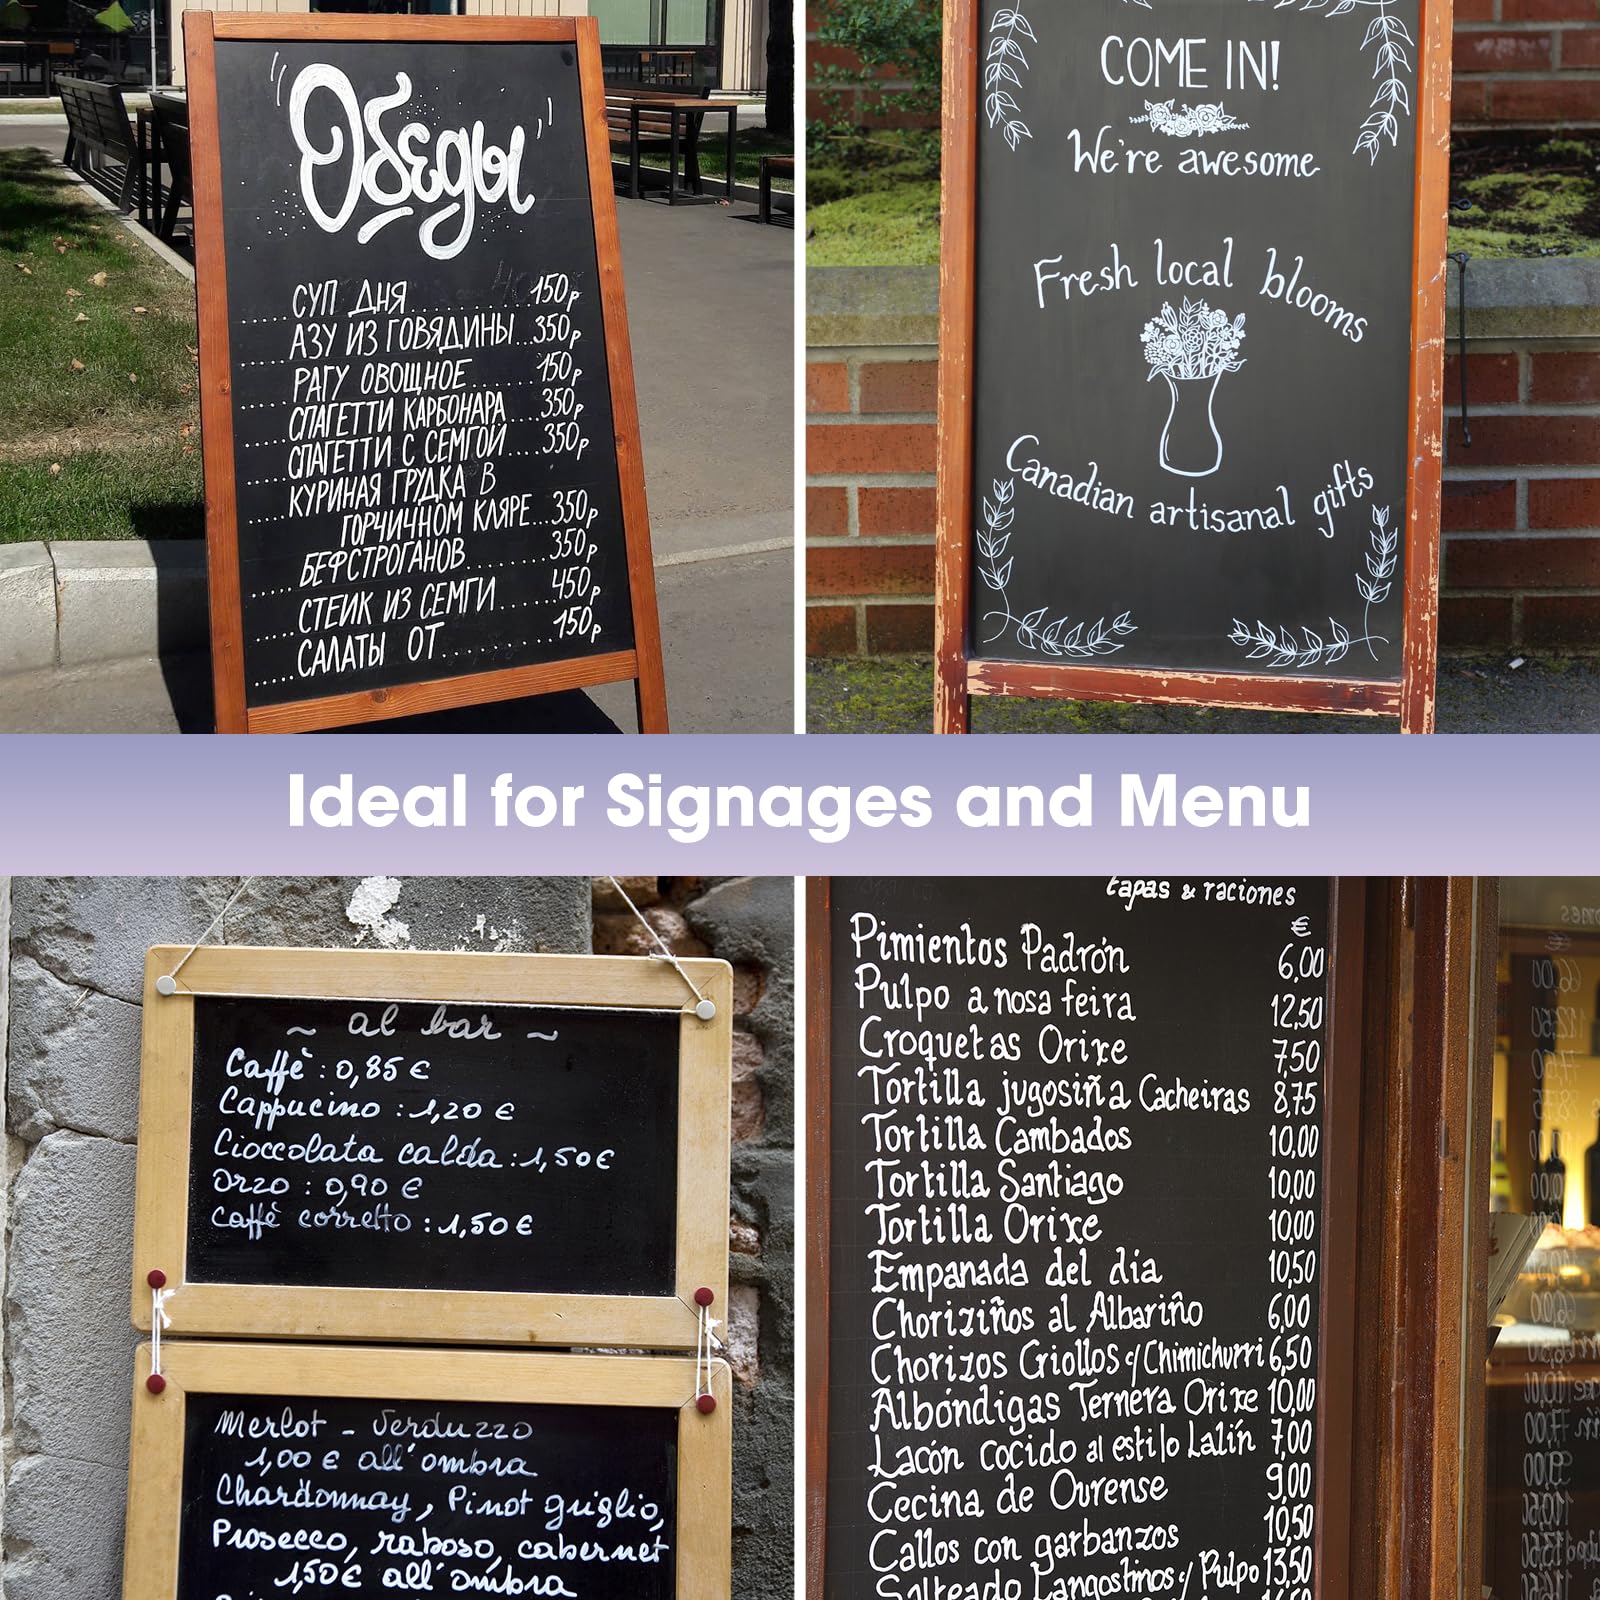 Обеды
СУП ДНЯ..........150р
.....АЗУ ИЗ ГОВЯДИНЫ...350р
.....РАГУ ОВОЩНОЕ.......150р
.....СПАГЕТТИ КАРБОНАРА...350р
.....СПАГЕТТИ С СЕМГОЙ...350р
.....КУРИНАЯ ГРУДКА В
ГОРЧИЧНОМ КЛЯРЕ...350р
БЕФСТРОГАНОВ.......350р
.....СТЕИК ИЗ СЕМГИ......450р
.....САЛАТЫ ОТ.........150р
COME IN!
We're awesome
Fresh local blooms
Canadian artisanal gifts
Ideal for Signages and Menu
~ al bar ~
Caffè : 0,85 €
Cappucino : 1,20 €
Cioccolata calda : 1,50 €
Orzo : 0,90 €
Caffè corretto : 1,50 €
Merlot - Verduzzo
1,00 € all'ombra
Chardonnay, Pinot griglio,
Prosecco, raboso, cabernet
1,50€ all'ombra
tapas & raciones
€
Pimientos Padrón 6,00
Pulpo a nosa feira 12,50
Croquetas Orixe 7,50
Tortilla jugosiña Cacheiras 8,75
Tortilla Cambados 10,00
Tortilla Santiago 10,00
Tortilla Orixe 10,00
Empanada del dia 10,50
Choriziños al Albariño 6,00
Chorizos Criollos c/ Chimichurri 6,50
Albóndigas Ternera Orixe 10,00
Lacón cocido al estilo Lalín 7,00
Cecina de Ourense 9,00
Callos con garbanzos 10,50
Salteado Langostinos y Pulpo 13,50